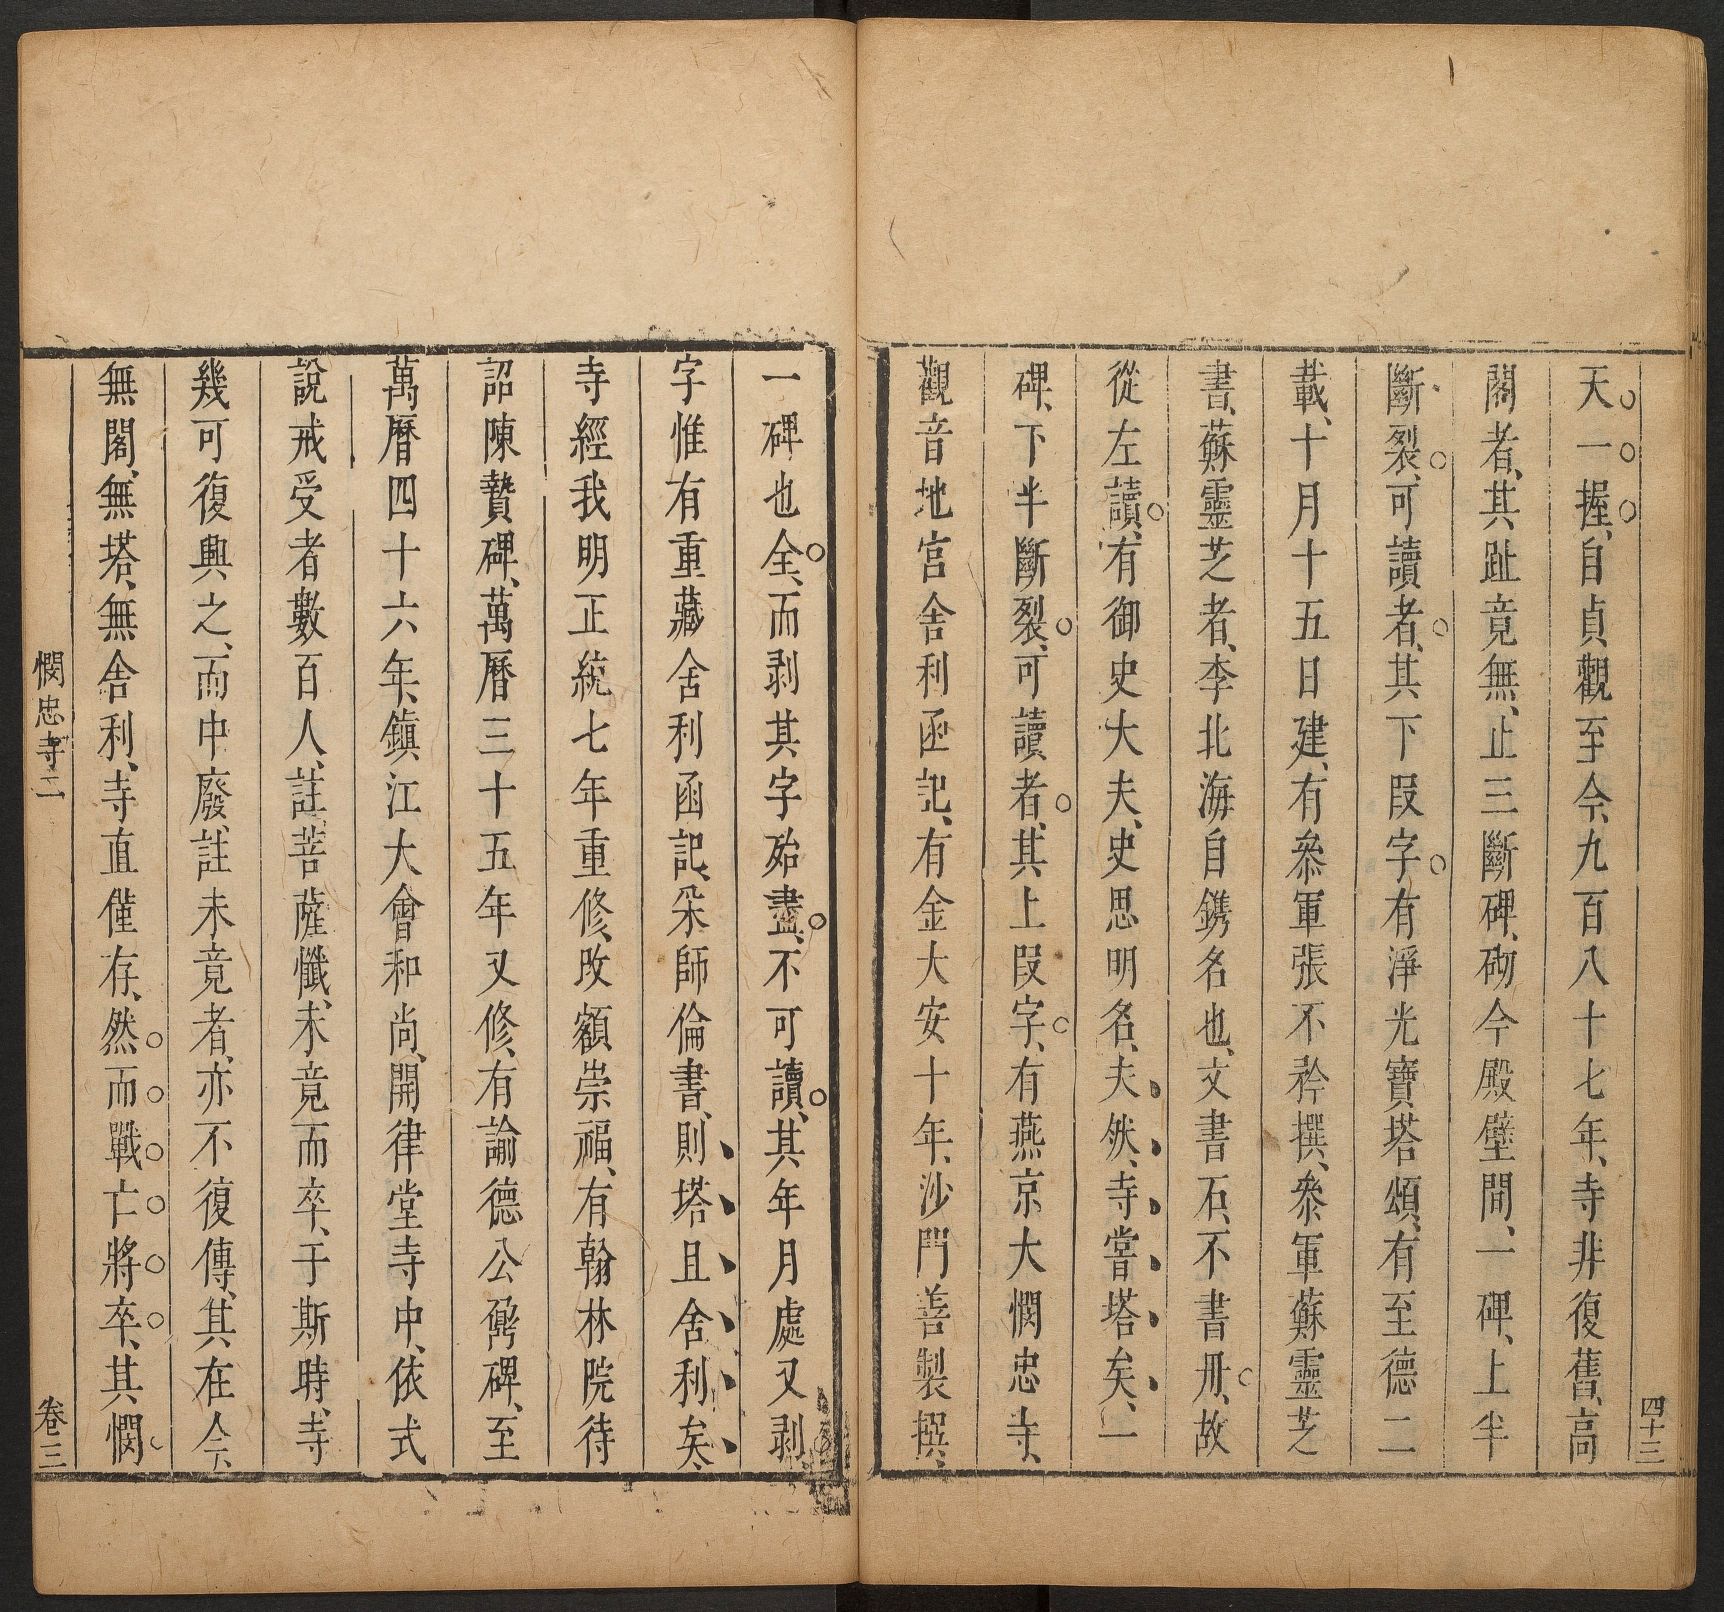 四十三
天一握、自貞觀至今、九百八十七年、寺非復舊、高
閣者、其趾竟無、止三斷碑、砌今殿壁間、一碑、上半
斷裂、可讀者、其下段字、有淨光寶塔頌、有至德二
載、十月十五日建、有叅軍張不矜撰、叅軍蘇靈芝
書、蘇靈芝者、李北海自鐫名也、文書石、不書冊、故
從左讀、有御史大夫、史思明名、夫然、寺嘗塔矣、一
碑、下半斷裂、可讀者、其上段字、有燕京大憫忠寺、
觀音地宮舍利函記、有金大安十年、沙門善製撰、
一碑也全、而剥其字殆盡、不可讀、其年月處又剥
字惟有重藏舍利函記、采師倫書、則塔且舍利矣、
寺經我明正統七年重修、改額崇福、有翰林院待
詔陳贄碑、萬曆三十五年又修、有諭德公鼐碑、至
萬曆四十六年、鎮江大會和尚、開律堂寺中、依式
說戒受者數百人、註菩薩懺、未竟而卒、于斯時、寺
幾可復興之、而中廢、註未竟者、亦不復傳、其在今、
無閣、無塔、無舍利、寺直僅存、然而戰亡將卒、其憫
憫忠寺二
卷三